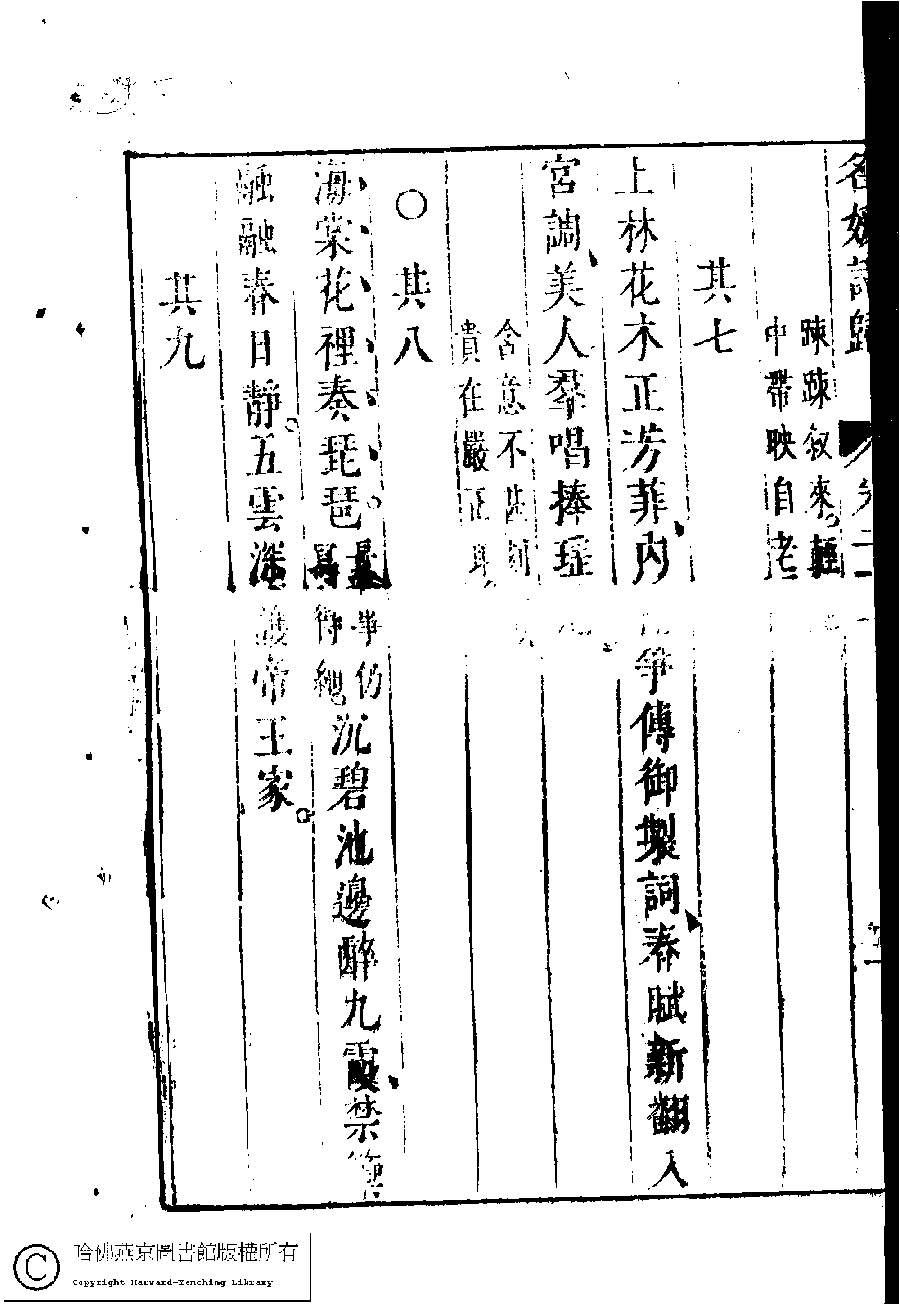 名媛詩歸
卷二
踈踈叙來輕
中帶映自老
其七
上林花木正芳菲內 爭傳御製詞春賦新翻入
宮調美人羣唱捧瑤
含意不甚刻
貴在嚴正
其八
海棠花裡奏琵琶 沉碧池邊醉九霞禁
事仍
得 
融融春日靜五雲深護帝王家
其九
哈佛燕京圖書館版權所有
Copyright Harvard-Yenching Library